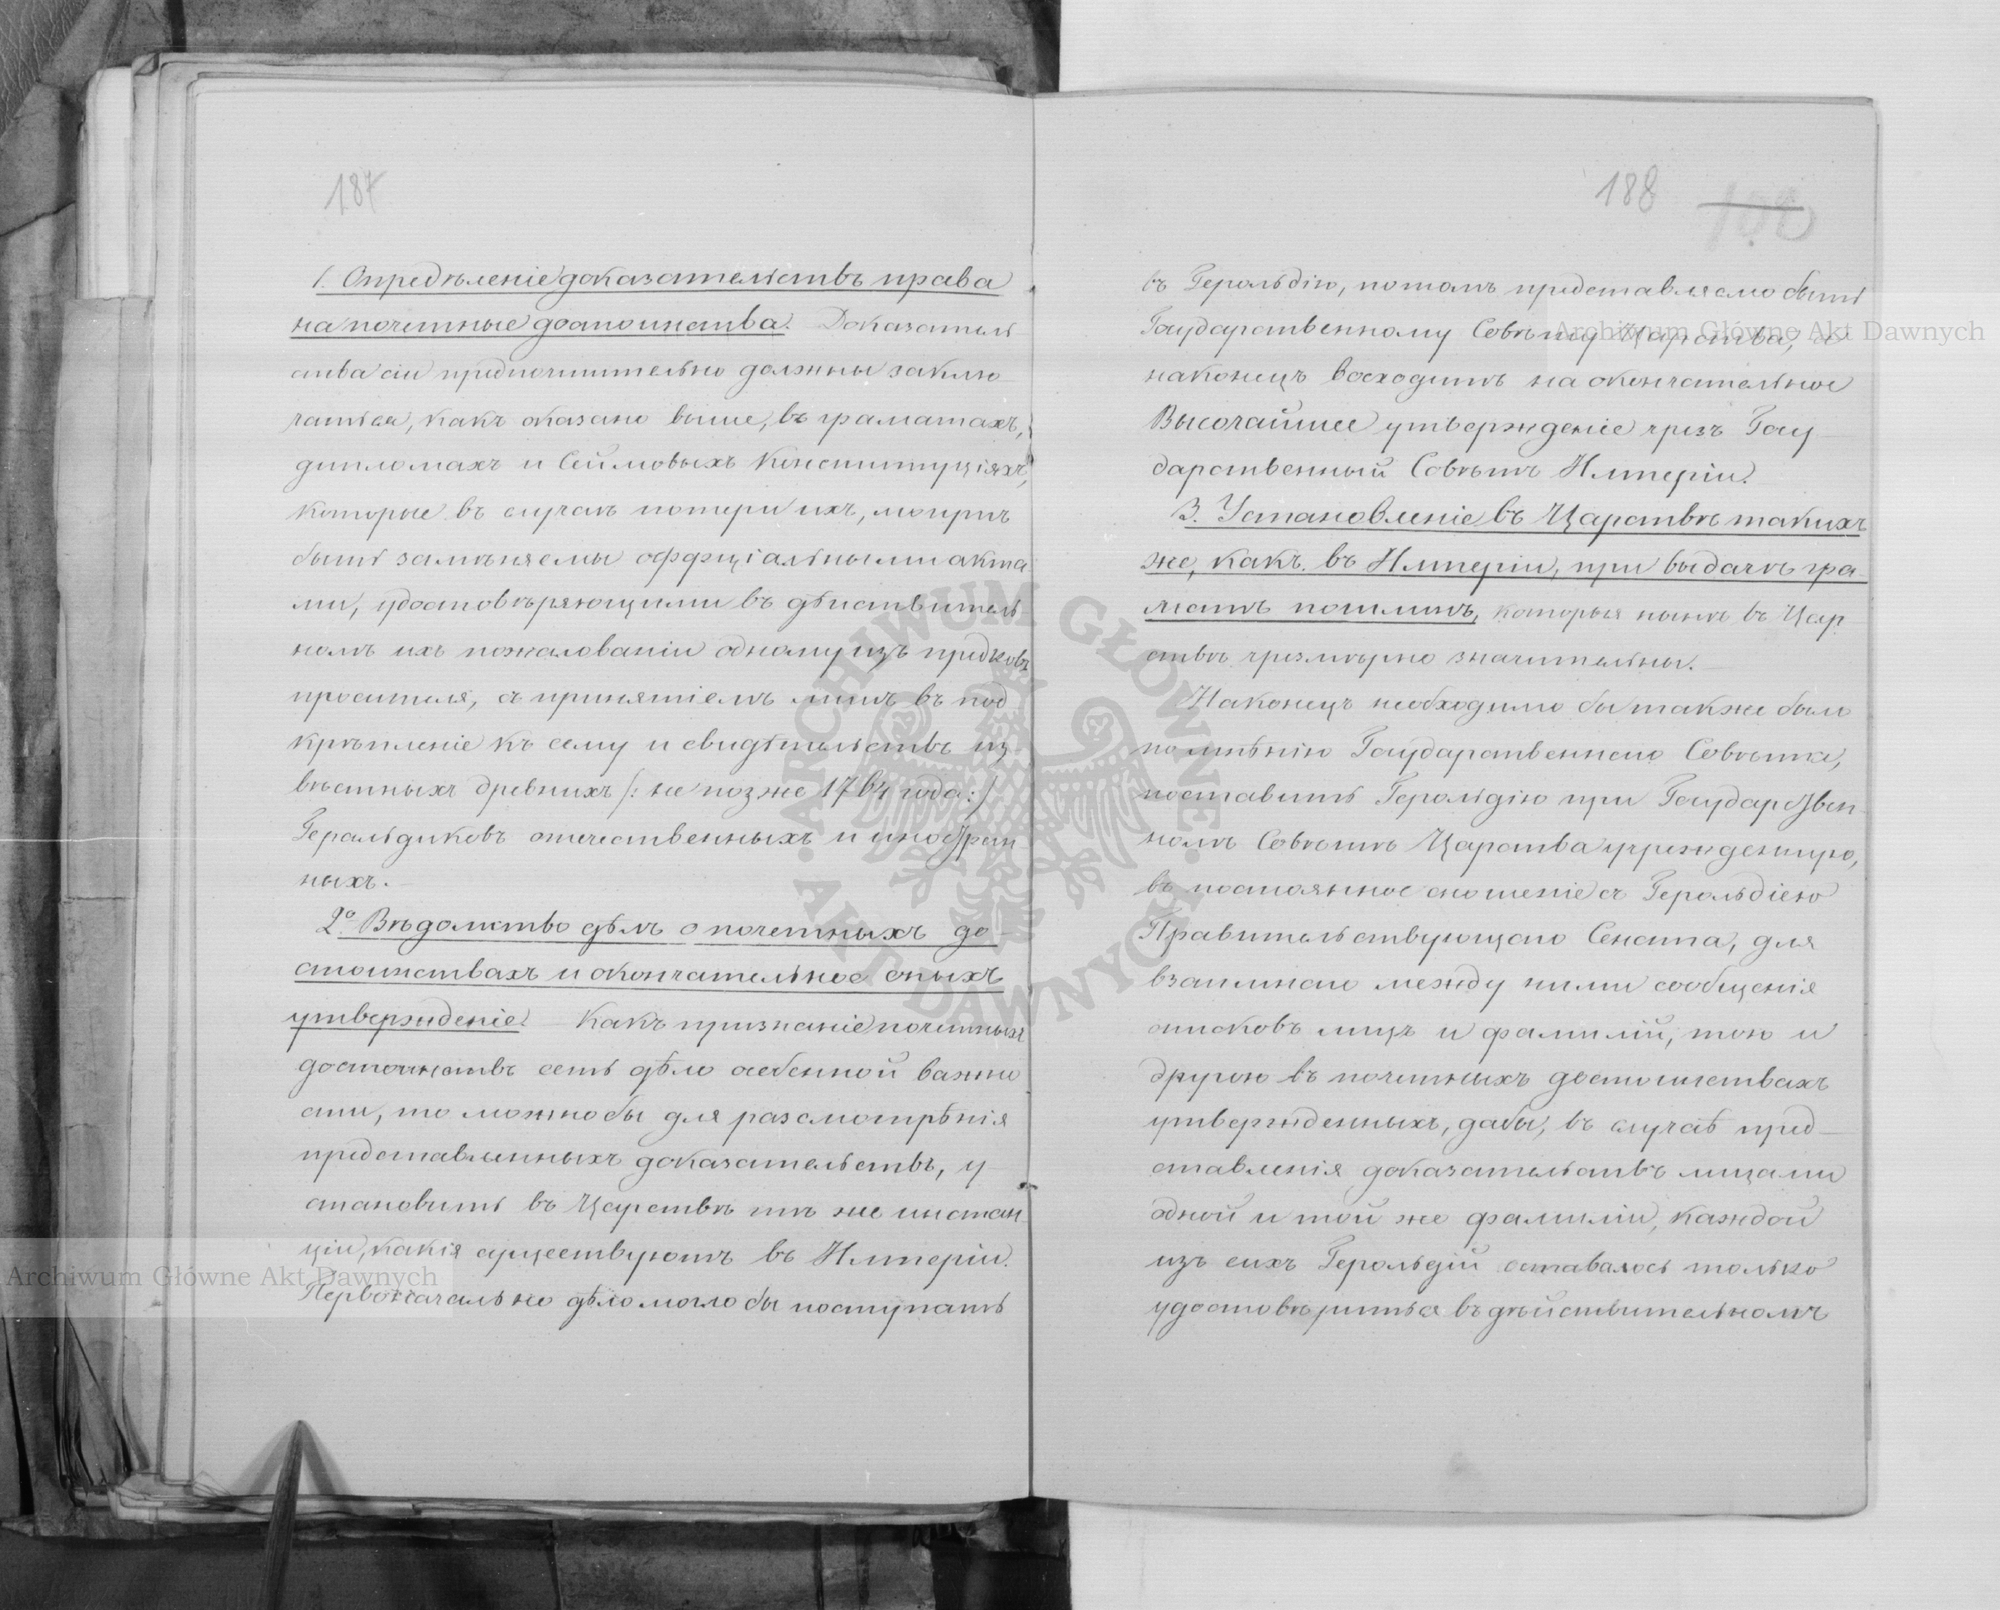 187
1. Опредѣленіе доказательствъ права
на почетные достоинства. Доказатель
ства сіи предпочтительно должны заклю
чаться, какъ сказано выше, въ граматахъ,
дипломахъ и Сеймовыхъ Конституціяхъ,
которые въ случаѣ потери ихъ, могутъ
быть замѣняемы оффиціальными акта
ми, удостовѣряющими въ дѣйствитель
номъ ихъ пожалованіи одному изъ предковъ
просителя, съ принятіемъ лишь въ под
крѣпленіе къ сему и свидѣтельствъ из
вѣстныхъ древнихъ /: не позже 1764 года :/
Геральдиковъ отечественныхъ и иностран
ныхъ.
2º Вѣдомство дѣлъ о почетныхъ до-
стоинствахъ и окончательное оныхъ
утвержденіе. Какъ признаніе почетныхъ
достоинствъ есть дѣло особенной важно
сти, то можно бы для разсмотрѣнія
представленныхъ доказательствъ, у-
становить въ Царствѣ тѣ же инстан-
ціи, какія существуютъ въ Имперіи.
Первоначально дѣло могло бы поступать
188
въ Герольдію, потомъ представляемо быть
Государственному Совѣту Царства, а
наконецъ восходить на окончательное
Высочайшее утвержденіе чрезъ Госу-
дарственный Совѣтъ Имперіи.
3. Установленіе въ Царствѣ такихъ
же, какъ въ Имперіи, при выдачѣ гра-
мотъ пошлинъ, которыя нынѣ въ Цар
ствѣ чрезмѣрно значительны.
Наконецъ необходимо бы также было
по мнѣнію Государственнаго Совѣта,
поставить Герольдію при Государствен-
номъ Совѣтѣ Царства учрежденную,
въ постоянное сношеніе съ Герольдіею
Правительствующаго Сената, для
взаимнаго между ними сообщенія
списковъ лицъ и фамилій, тою и
другою въ почетныхъ достоинствахъ
утвержденныхъ, дабы, въ случаѣ пред-
ставленія доказательствъ лицами
одной и той же фамиліи, каждой
изъ сихъ Герольдій оставалось только
удостовѣриться въ дѣйствительномъ
Archiwum Główne Akt Dawnych
Archiwum Główne Akt Dawnych
ARCHIWUM GŁÓWNE · AKT DAWNYCH ·